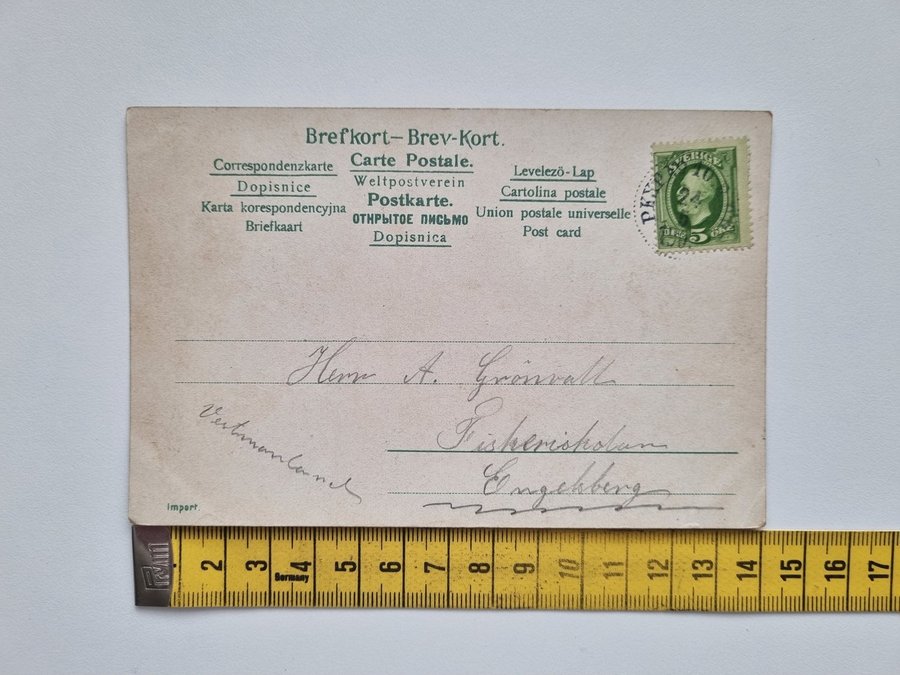 Brefkort – Brev-Kort.
Correspondenzkarte
Dopisnice
Karta korespondencyjna
Briefkaart
Carte Postale.
Weltpostverein
Postkarte.
ОТКРЫТОЕ ПИСЬМО
Dopisnica
Levelezö-Lap
Cartolina postale
Union postale universelle
Post card
SVERIGE
5
Herr A. Grönvall
Fiskeriskolan
Engelsberg
Vestmanland
Import.
2 3 4 5 6 7 8 9 10 11 12 13 14 15 16 17
Germany